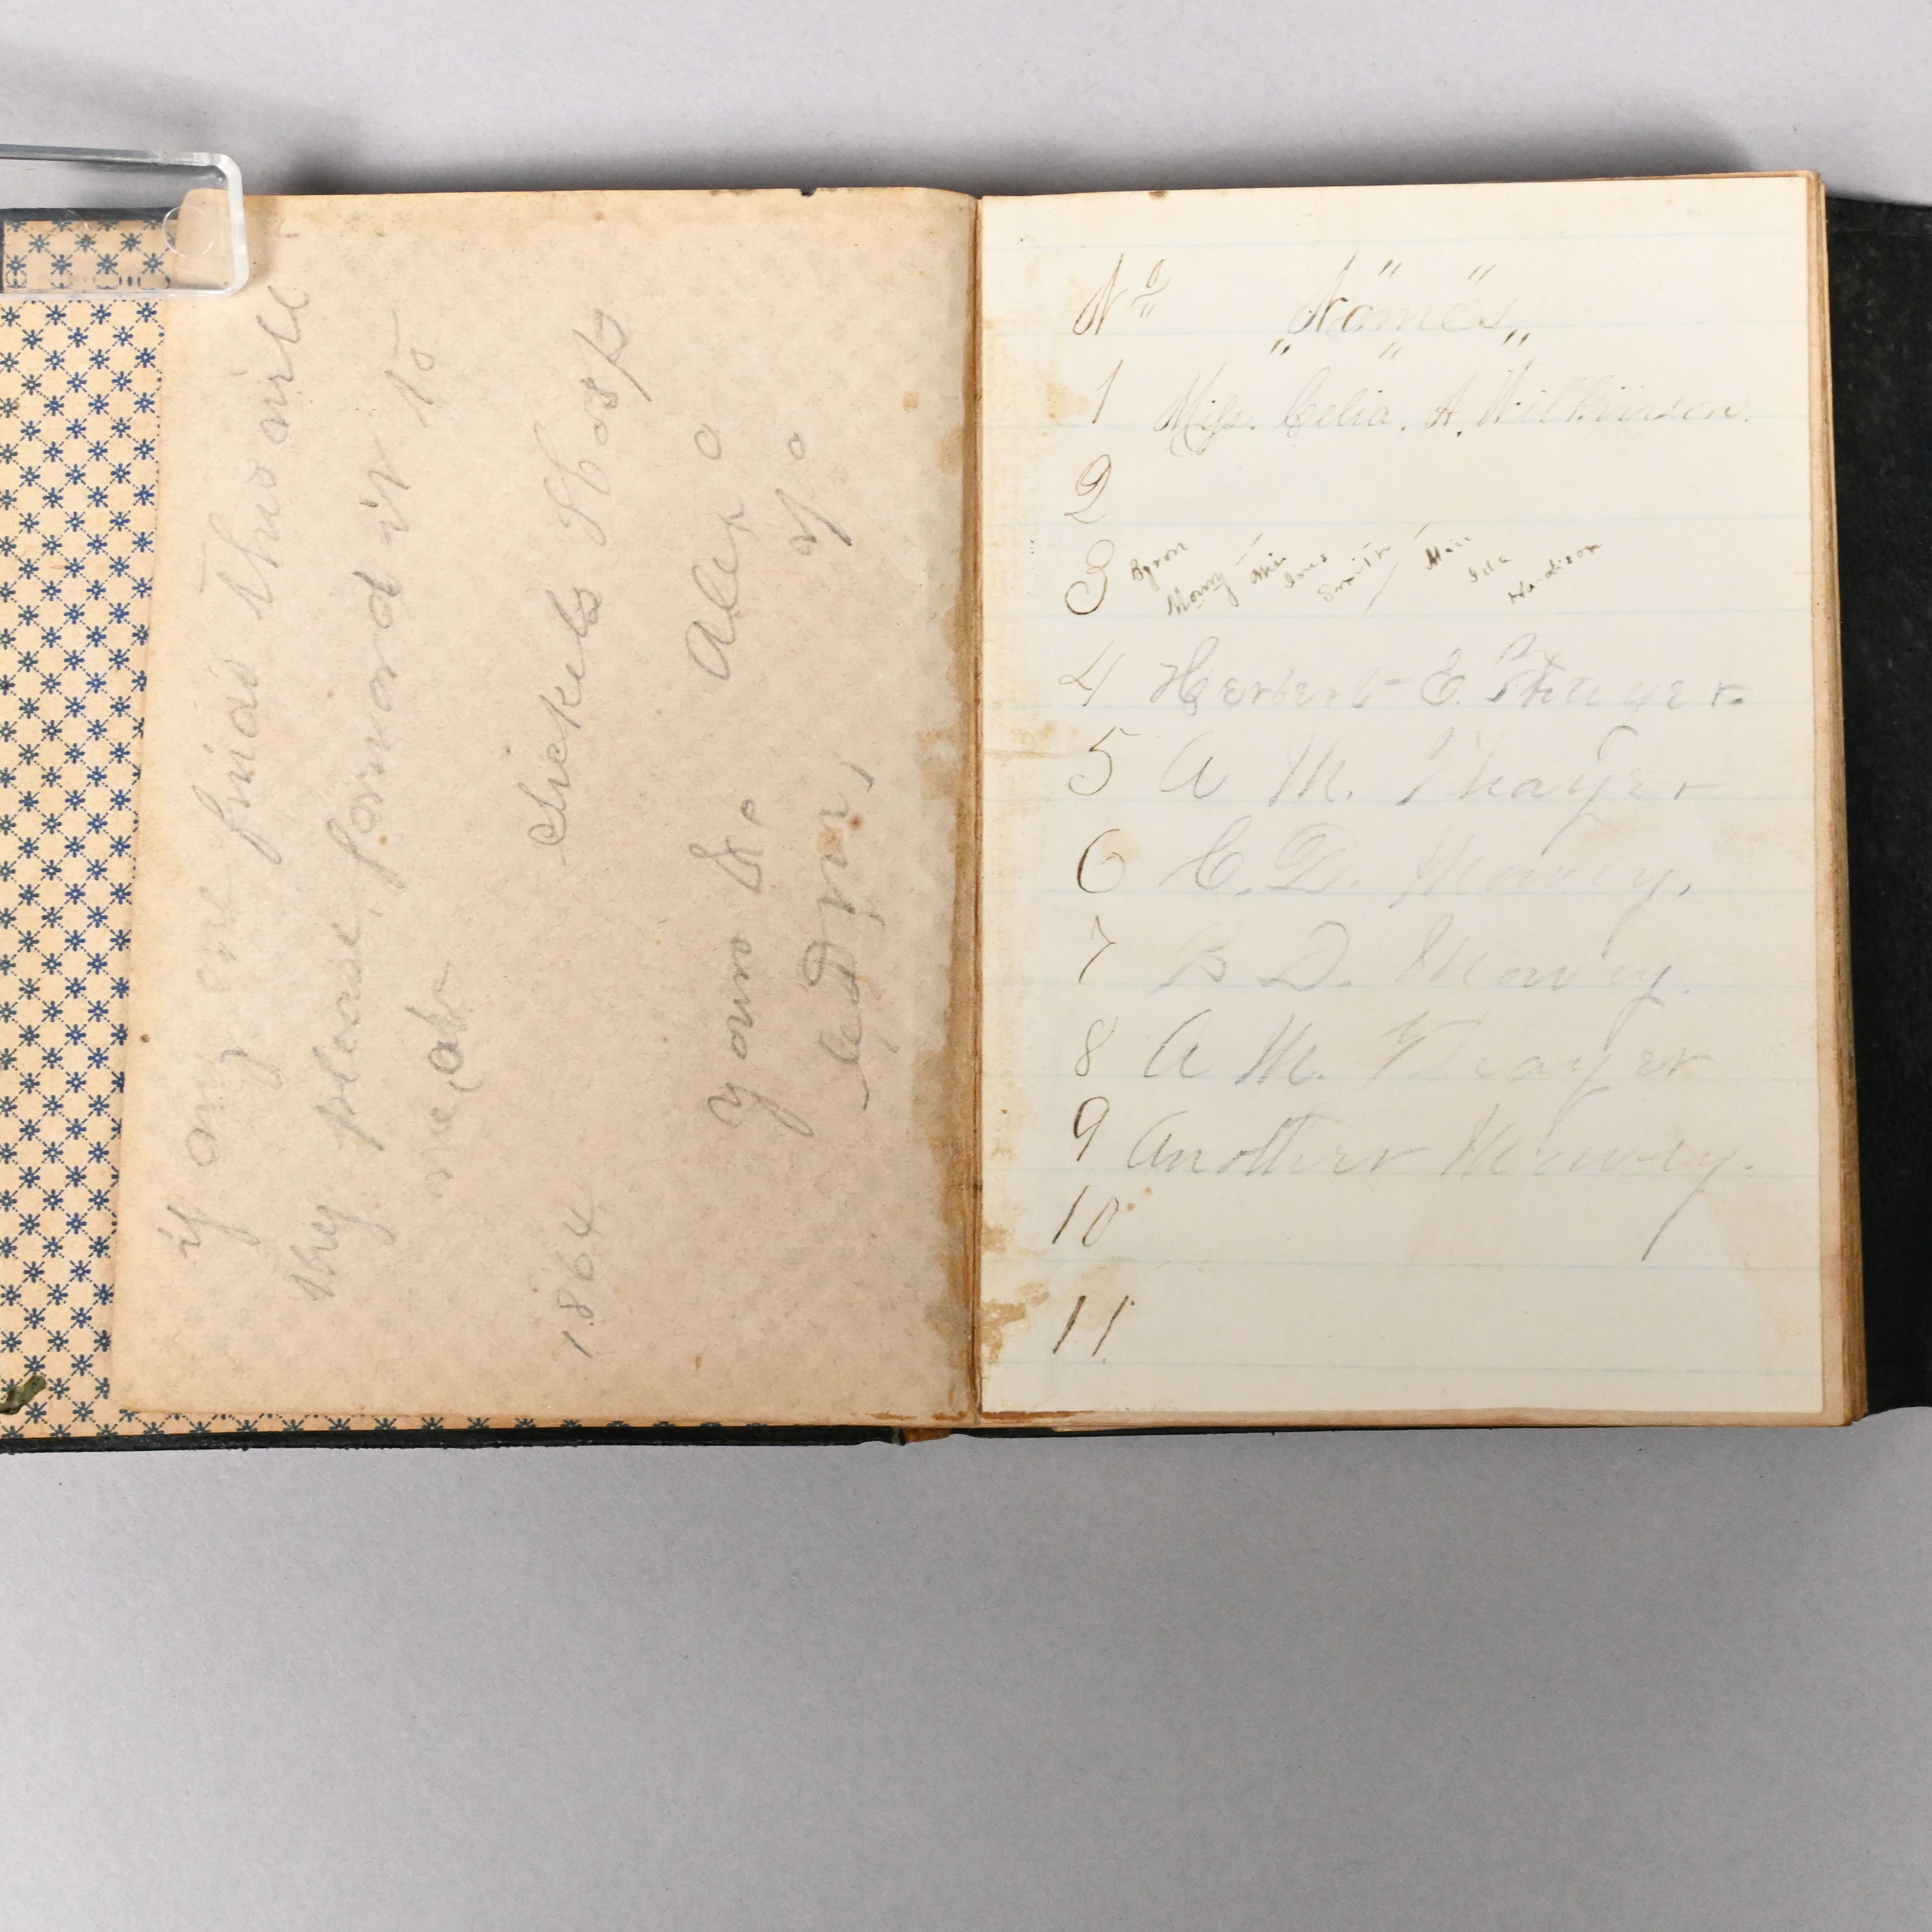 if any one finds this will
they please forward it to
me, at
Sickels Hosp
1864
yours &c Alex a
Va
No Names
1 Miss. Celia. A. Wilkinson.
2
3 Byron Mowry Miss Ines Smith / Miss Ida Hardison
4 Herbert E. Thayer.
5 A M. Thayer
6 C. D. Mowry.
7 B D. Mowry.
8 A M. Thayer
9 Another Mowry.
10
11